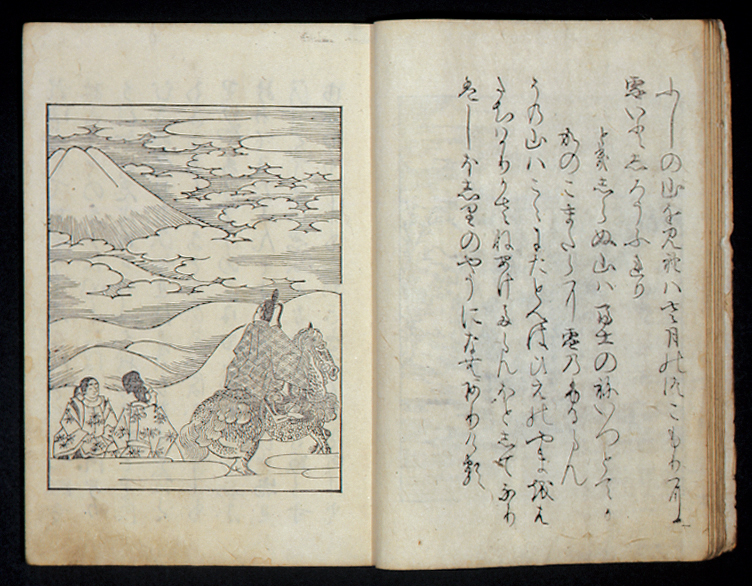 ふしの山を見れハさ月のつこもりに
雪いとしろうふれり
時しらぬ山ハ富士のねいつとてか
かのこまたらに雪のふるらん
その山ハこゝにたとへはひえのやまをは
たちはかりかさねあけたらんほとしてなり
はしほしりのやうになんありける